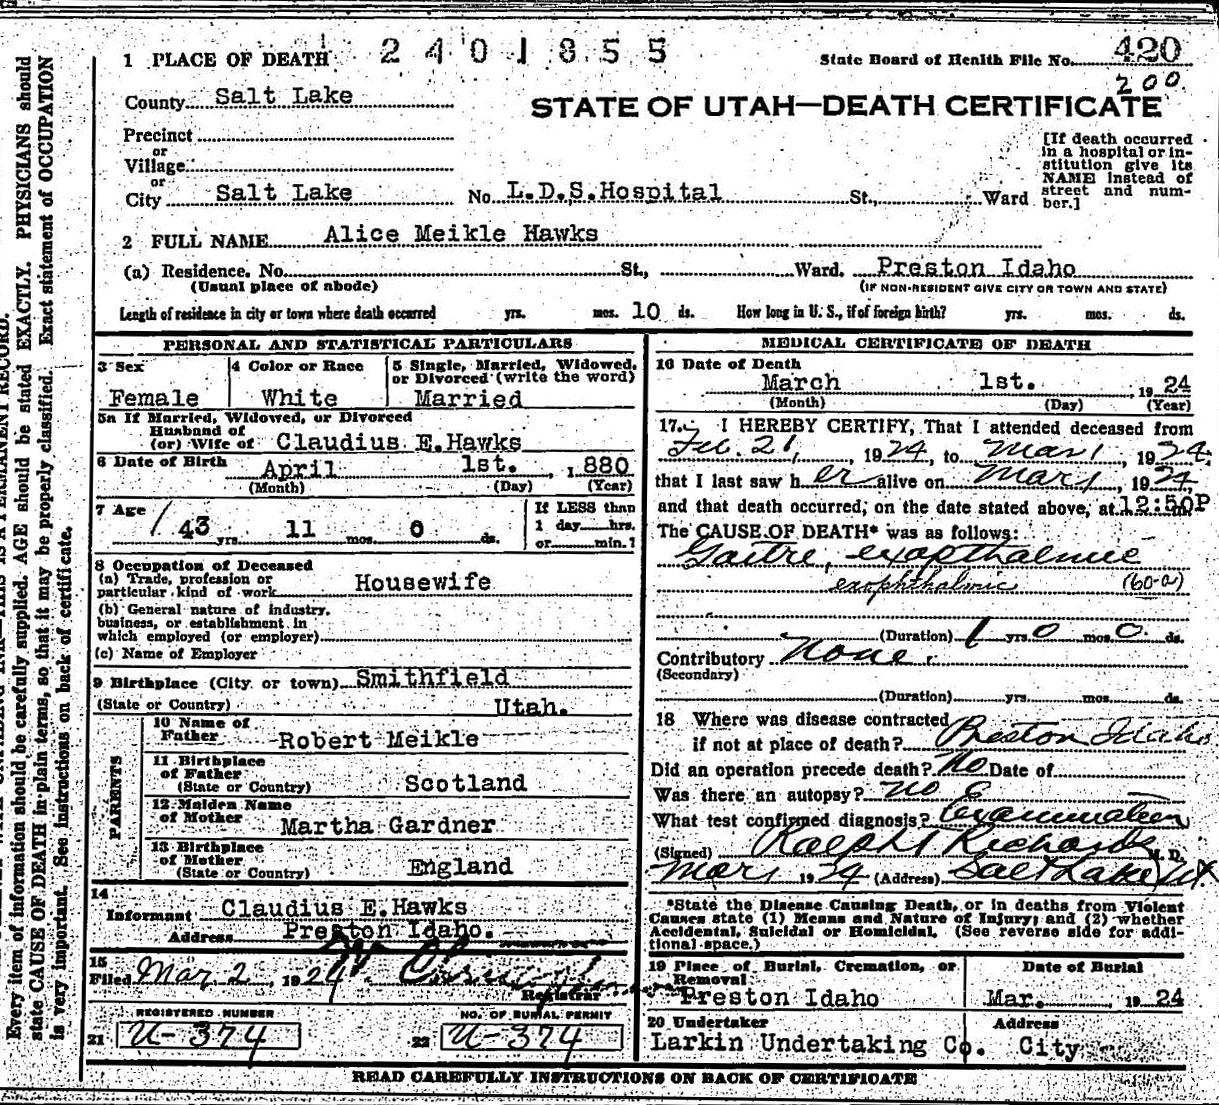 2401855
1 PLACE OF DEATH
State Board of Health File No. 420
200
County Salt Lake
STATE OF UTAH—DEATH CERTIFICATE
Precinct
or
Village
or
City Salt Lake No. L.D.S.Hospital St., Ward
[If death occurred
in a hospital or in-
stitution give its
NAME instead of
street and num-
ber.]
2 FULL NAME Alice Meikle Hawks
(a) Residence. No. St., Ward. Preston Idaho
(Usual place of abode) (IF NON-RESIDENT GIVE CITY OR TOWN AND STATE)
Length of residence in city or town where death occurred yrs. mos. 10 ds. How long in U. S., if of foreign birth? yrs. mos. ds.
PERSONAL AND STATISTICAL PARTICULARS
3 Sex
Female
4 Color or Race
White
5 Single, Married, Widowed,
or Divorced (write the word)
Married
5a If Married, Widowed, or Divorced
Husband of
(or) Wife of Claudius E.Hawks
6 Date of Birth April 1st. , 1880
(Month) (Day) (Year)
7 Age
43 yrs. 11 mos. 0 ds.
If LESS than
1 day hrs.
or min.?
8 Occupation of Deceased
(a) Trade, profession or
particular kind of work Housewife
(b) General nature of industry,
business, or establishment in
which employed (or employer)
(c) Name of Employer
9 Birthplace (City or town) Smithfield
(State or Country) Utah.
PARENTS
10 Name of
Father Robert Meikle
11 Birthplace
of Father
(State or Country) Scotland
12 Maiden Name
of Mother Martha Gardner
13 Birthplace
of Mother
(State or Country) England
14
Informant Claudius E.Hawks
Address Preston Idaho.
15
Filed Mar 2, 1924
Registrar
REGISTERED NUMBER
21 U-374
NO. OF BURIAL PERMIT
22 U-374
MEDICAL CERTIFICATE OF DEATH
16 Date of Death
March 1st. , 1924
(Month) (Day) (Year)
17. I HEREBY CERTIFY, That I attended deceased from
Feb. 21, 1924, to Mar 1, 1924,
that I last saw her alive on Mar 1, 1924
and that death occurred, on the date stated above, at 12:50P m.
The CAUSE OF DEATH* was as follows:
Goitre, exopthalmic
exophthalmic (60-a)
(Duration) 1 yrs. 0 mos. 0 ds.
Contributory None.
(Secondary)
(Duration) yrs. mos. ds.
18 Where was disease contracted
if not at place of death? Preston Idaho
Did an operation precede death? No Date of
Was there an autopsy? no
What test confirmed diagnosis? Examination
(Signed) Ralph T Richards M. D.
Mar 1 1924 (Address) Salt Lake Ut
*State the Disease Causing Death, or in deaths from Violent
Causes state (1) Means and Nature of Injury; and (2) whether
Accidental, Suicidal or Homicidal. (See reverse side for addi-
tional space.)
19 Place of Burial, Cremation, or
Removal
Preston Idaho
Date of Burial
Mar. , 1924
20 Undertaker
Larkin Undertaking Co.
Address
City
READ CAREFULLY INSTRUCTIONS ON BACK OF CERTIFICATE
Every item of information should be carefully supplied. AGE should be stated EXACTLY. PHYSICIANS should
state CAUSE OF DEATH in plain terms, so that it may be properly classified. Exact statement of OCCUPATION
is very important. See instructions on back of certificate.